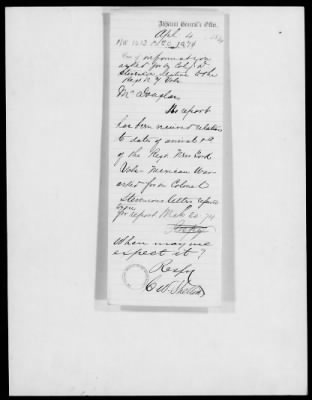 Adjutant General's Office,
Apl 4
1874
information
asked for by Col. J. D.
Stevenson relative to the
Regt N Y Vols
Mr Douglas
No report
has been received relative
to dates of arrival &c
of the Regt. New York
Vols. Mexican War
asked for in Colonel
Stevensons letter
for report Mch 20 74
When may we
expect it?
Respy
C W Shelton